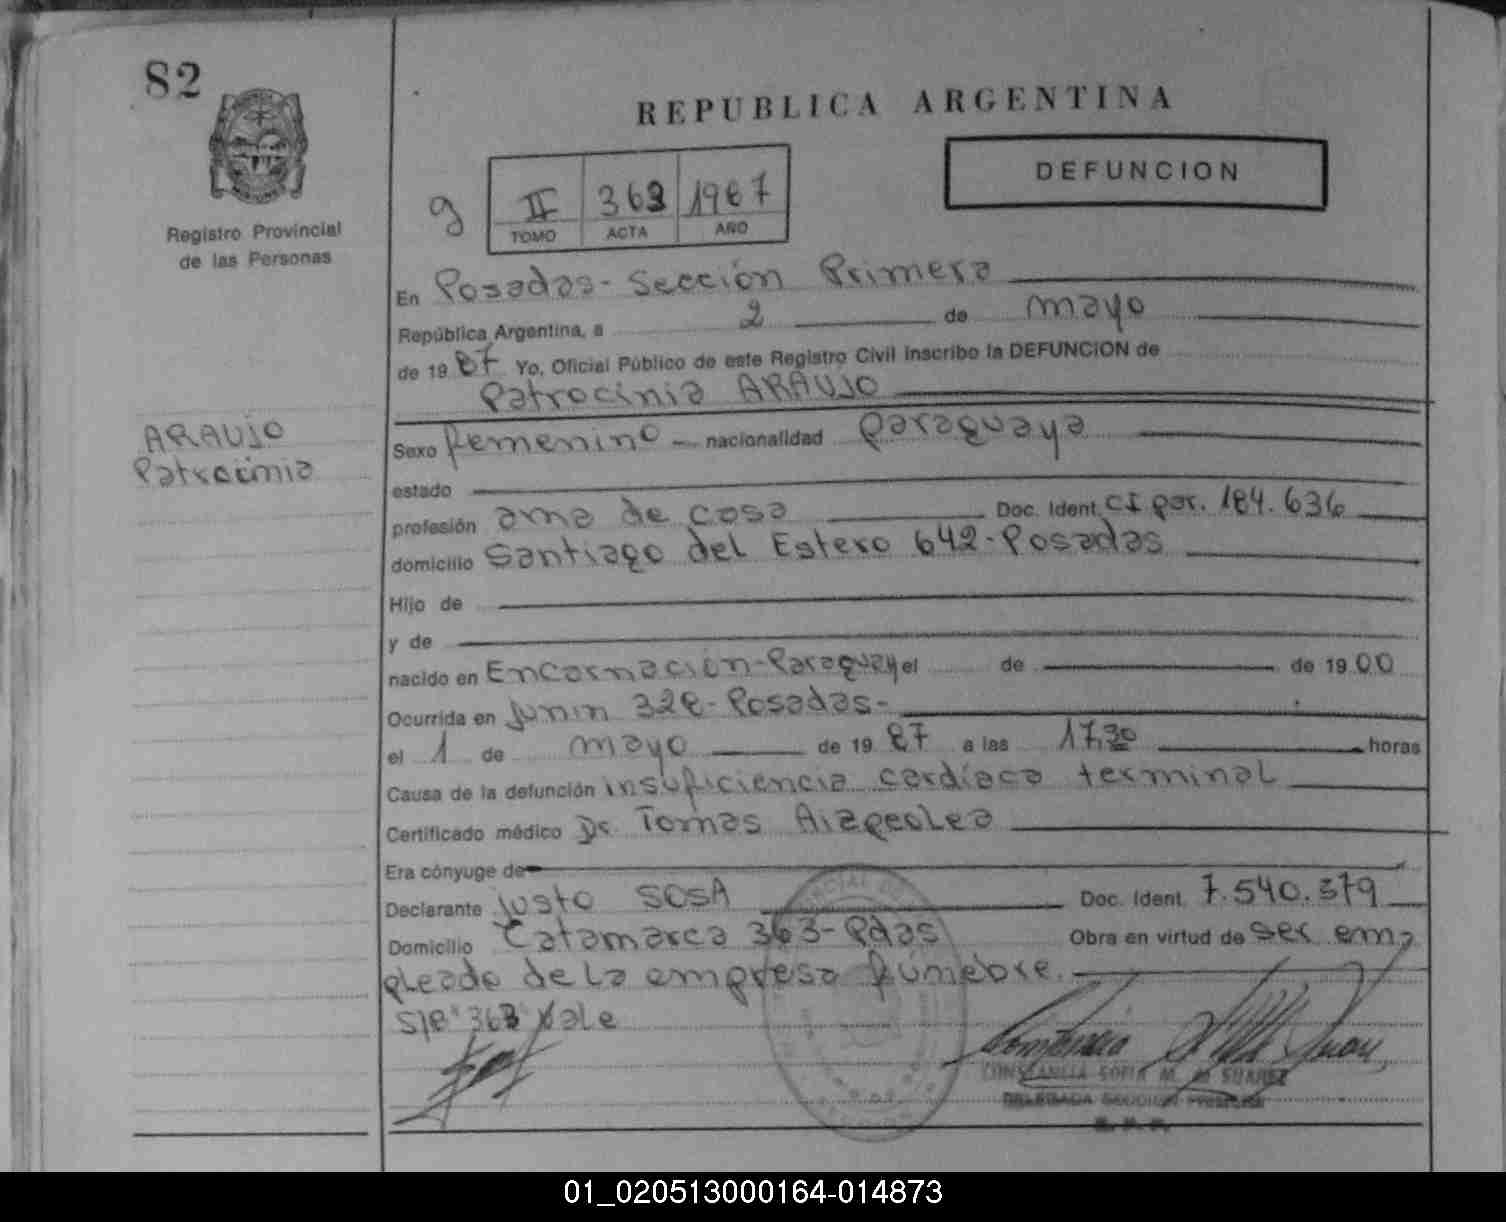 82
REPUBLICA ARGENTINA
DEFUNCION
g II 363 1987
TOMO ACTA AÑO
Registro Provincial
de las Personas
En Posadas - Sección Primera
República Argentina, a 2 de mayo
de 19 87 Yo, Oficial Público de este Registro Civil inscribo la DEFUNCION de
Patrocinia ARAUJO
ARAUJO
Patrocinia
Sexo femenino nacionalidad Paraguaya
estado
profesión ama de casa Doc. Ident. CI par. 184.636
domicilio Santiago del Estero 642 - Posadas
Hijo de
y de
nacido en Encarnación - Paraguay el de de 19 00
Ocurrida en Junin 328 - Posadas -
el 1 de mayo de 19 87 a las 17,30 horas
Causa de la defunción insuficiencia cardíaca terminal
Certificado médico Dr. Tomas Aizpeolea
Era cónyuge de
Declarante Justo SOSA Doc. Ident. 7.540.379
Domicilio Catamarca 363 - Pdas Obra en virtud de ser em
pleado de la empresa fúnebre.
S/R "363" Vale
CONSTANCIA SOFIA M. de SUAREZ
DELEGADA SECCION PRIMERA
R. P. P.
01_020513000164-014873